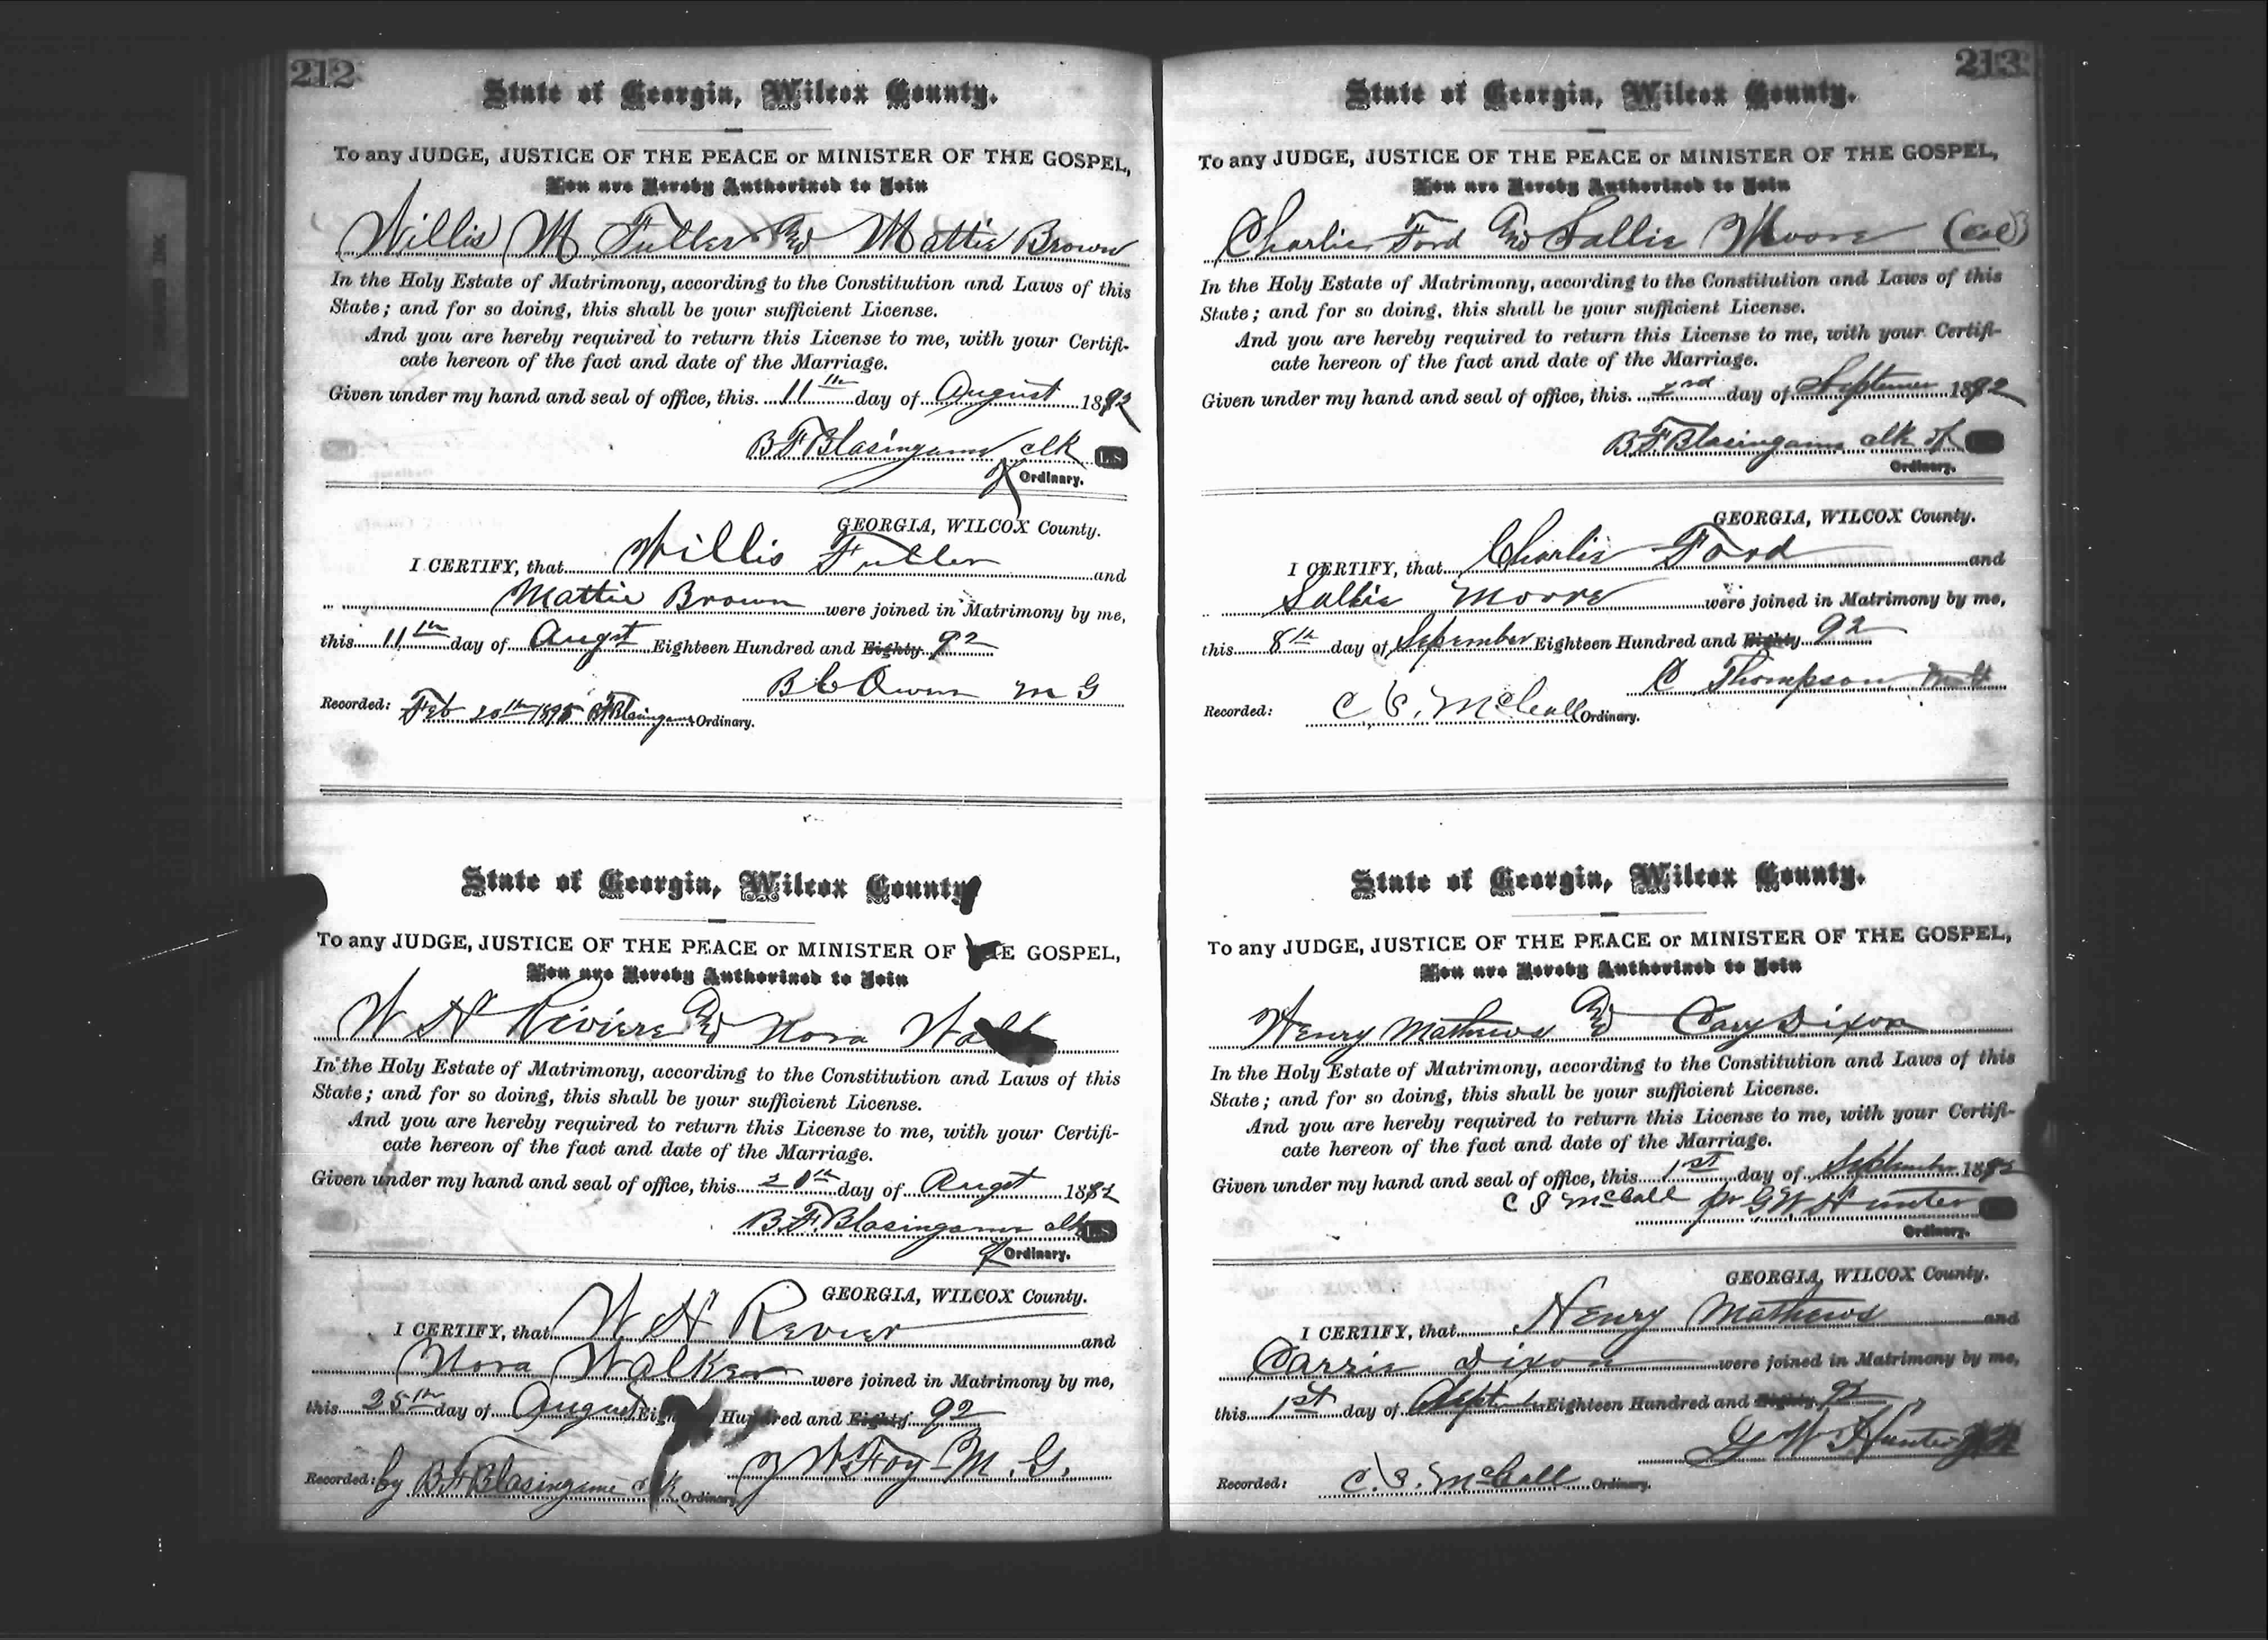 212
State of Georgia, Wilcox County.
To any JUDGE, JUSTICE OF THE PEACE or MINISTER OF THE GOSPEL,
You are Hereby Authorized to Join
Willis M Fuller and Mattie Brown
In the Holy Estate of Matrimony, according to the Constitution and Laws of this
State; and for so doing, this shall be your sufficient License.
And you are hereby required to return this License to me, with your Certifi-
cate hereon of the fact and date of the Marriage.
Given under my hand and seal of office, this 11th day of August 1892
B F Blasingame clk L.S
of Ordinary.
GEORGIA, WILCOX County.
I CERTIFY, that Willis Fuller and
Mattie Brown were joined in Matrimony by me,
this 11th day of Augst Eighteen Hundred and Eighty 92
B C Owen M G
Recorded: Feb 20th 1895 B F Blasingame Ordinary.
State of Georgia, Wilcox County
To any JUDGE, JUSTICE OF THE PEACE or MINISTER OF THE GOSPEL,
You are Hereby Authorized to Join
W H Riviere and Nora
In the Holy Estate of Matrimony, according to the Constitution and Laws of this
State; and for so doing, this shall be your sufficient License.
And you are hereby required to return this License to me, with your Certifi-
cate hereon of the fact and date of the Marriage.
Given under my hand and seal of office, this day of Augst 1892
B. F. Blasingame clk L.S
of Ordinary.
GEORGIA, WILCOX County.
I CERTIFY, that W H Revier and
Nora Walker were joined in Matrimony by me,
this 25th day of August Eighteen Hundred and Eighty 92
W Foy M. G.
Recorded: by B F Blasingame clk Ordinary
213
State of Georgia, Wilcox County.
To any JUDGE, JUSTICE OF THE PEACE or MINISTER OF THE GOSPEL,
You are Hereby Authorized to Join
Charlie Ford and Sallie Moore (col)
In the Holy Estate of Matrimony, according to the Constitution and Laws of this
State; and for so doing, this shall be your sufficient License.
And you are hereby required to return this License to me, with your Certifi-
cate hereon of the fact and date of the Marriage.
Given under my hand and seal of office, this 2nd day of Septemer 1892
B. F. Blasingame clk of
Ordinary.
GEORGIA, WILCOX County.
I CERTIFY, that Charlie Ford and
Sallie Moore were joined in Matrimony by me,
this 8th day of Sepember Eighteen Hundred and Eighty 92
C Thompson
Recorded: C. S. McCall Ordinary.
State of Georgia, Wilcox County.
To any JUDGE, JUSTICE OF THE PEACE or MINISTER OF THE GOSPEL,
You are Hereby Authorized to Join
Henry Mathews and Cary Dixon
In the Holy Estate of Matrimony, according to the Constitution and Laws of this
State; and for so doing, this shall be your sufficient License.
And you are hereby required to return this License to me, with your Certifi-
cate hereon of the fact and date of the Marriage.
Given under my hand and seal of office, this 1st day of September 1892
C S McCall pr G W Hunter
Ordinary.
GEORGIA, WILCOX County.
I CERTIFY, that Henry Mathews and
Carrie Dixon were joined in Matrimony by me,
this 1st day of Eighteen Hundred and Eighty 92
G W Hunter
Recorded: C. S. McCall Ordinary.